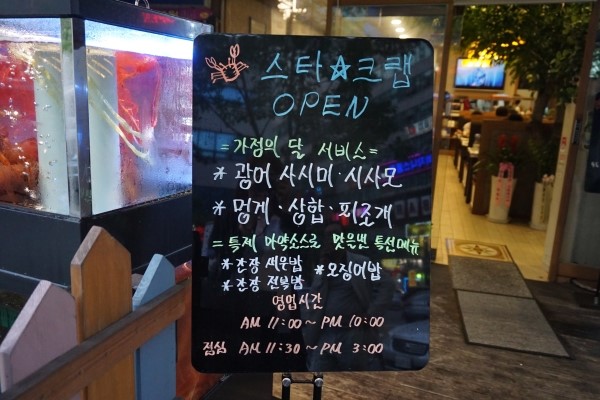 스타☆크랩
OPEN
=가정의 달 서비스=
* 광어 사시미·시사모
* 멍게·상합·피조개
=특제 마약소스로 맛을낸 특선메뉴
*간장 새우밥 *오징어밥
*간장 전복밥
영업시간
AM 11:00 ~ PM 10:00
점심 AM 11:30 ~ PM 3:00